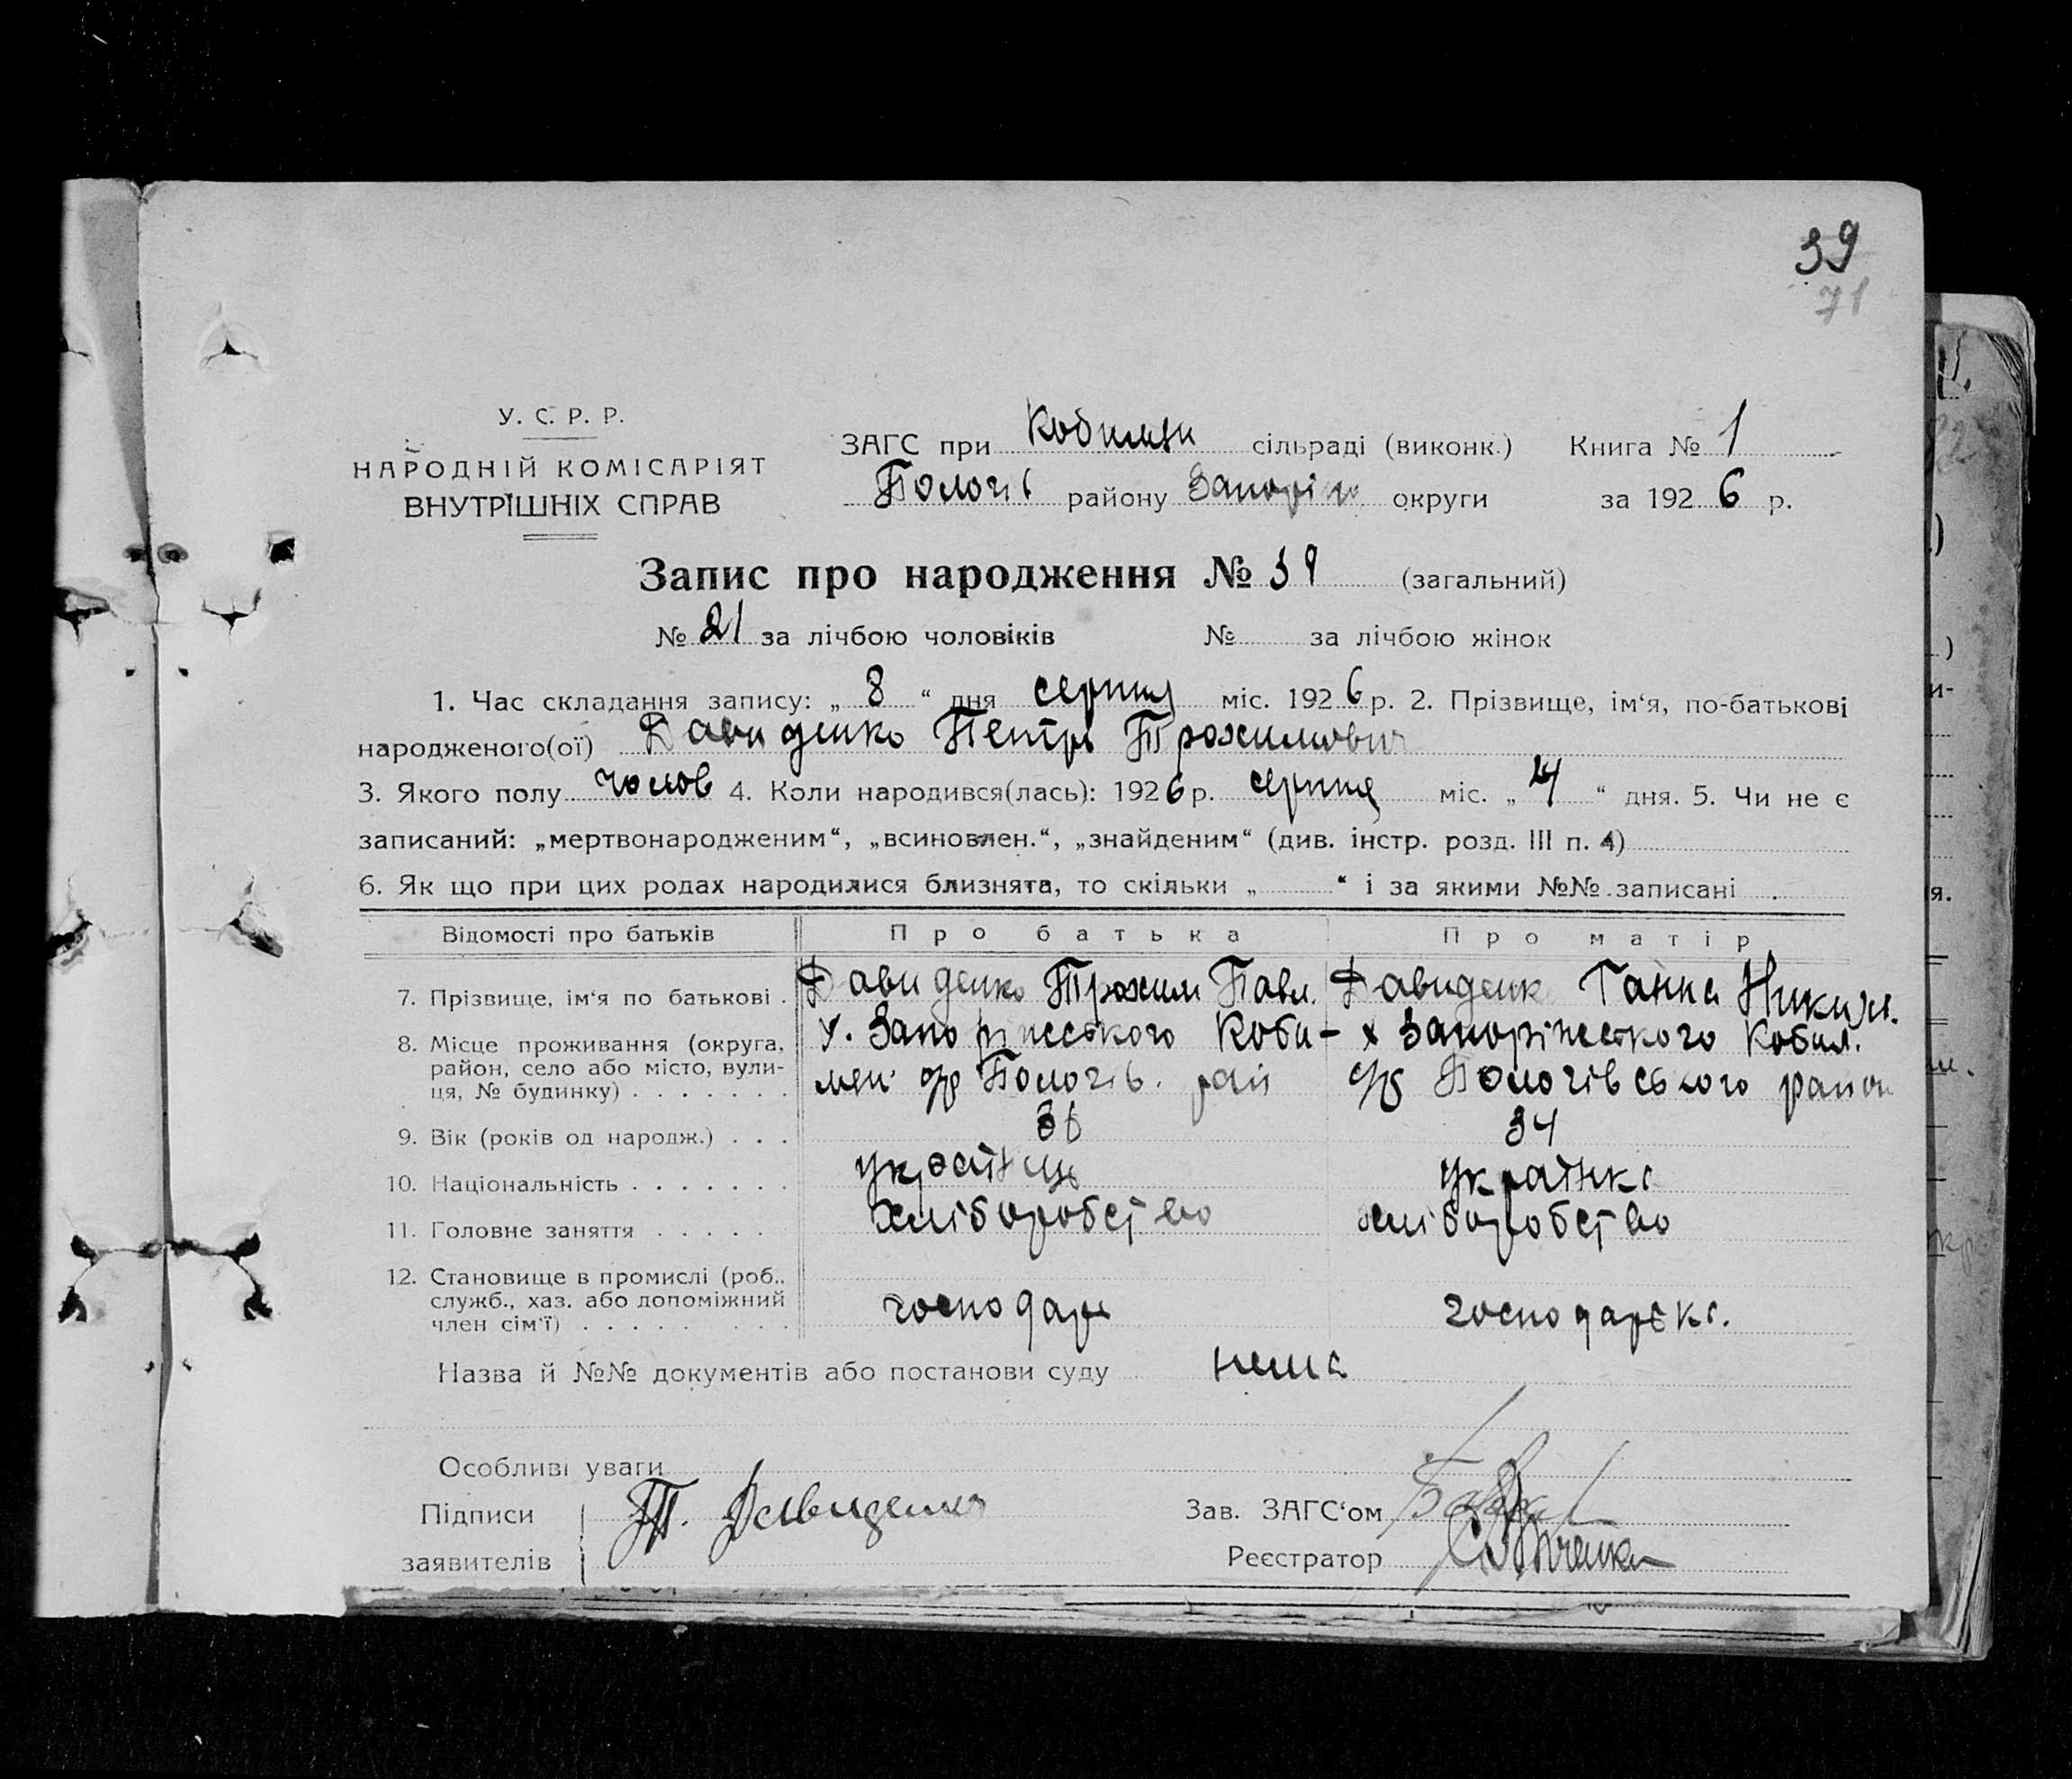 39
71
У. С. Р. Р.
НАРОДНІЙ КОМІСАРІЯТ
ВНУТРІШНІХ СПРАВ
ЗАГС при сільраді (виконк.) Книга № 1
Пологів району Запоріж округи за 1926 р.
Запис про народження № 39 (загальний)
№ 21 за лічбою чоловіків № за лічбою жінок
1. Час складання запису: „ 8 “ дня серпня міс. 1926 р. 2. Прізвище, ім‘я, по-батькові
народженого(ої) Давиденко Петро Трохимович
3. Якого полу чолов 4. Коли народився(лась): 1926 р. серпня міс. „ 4 “ дня. 5. Чи не є
записаний: „мертвонародженим“, „всиновлен.“, „знайденим“ (див. інстр. розд. III п. 4)
6. Як що при цих родах народилися близнята, то скільки „ “ і за якими №№ записані
Відомості про батьків Про батька Про матір
7. Прізвище, ім‘я по батькові . Давиденко Трохим Павл. Давиденк Ганна Никиф.
8. Місце проживання (округа, х. Запоріжського Коби- х Запоріжського Кобил.
район, село або місто, вули- лян. с/р Пологів. рай с/р Пологівського район
ця, № будинку) . . . . . . .
9. Вік (років од народж.) . . . 36 34
10. Національність . . . . . . . українець українка
11. Головне заняття . . . . . хліборобство хліборобство
12. Становище в промислі (роб.,
служб., хаз. або допоміжний господар господарка.
член сім‘ї) . . . . . . . .
Назва й №№ документів або постанови суду нема
Особливі уваги
Підписи Т. Давиденко Зав. ЗАГС‘ом
заявителів Реєстратор